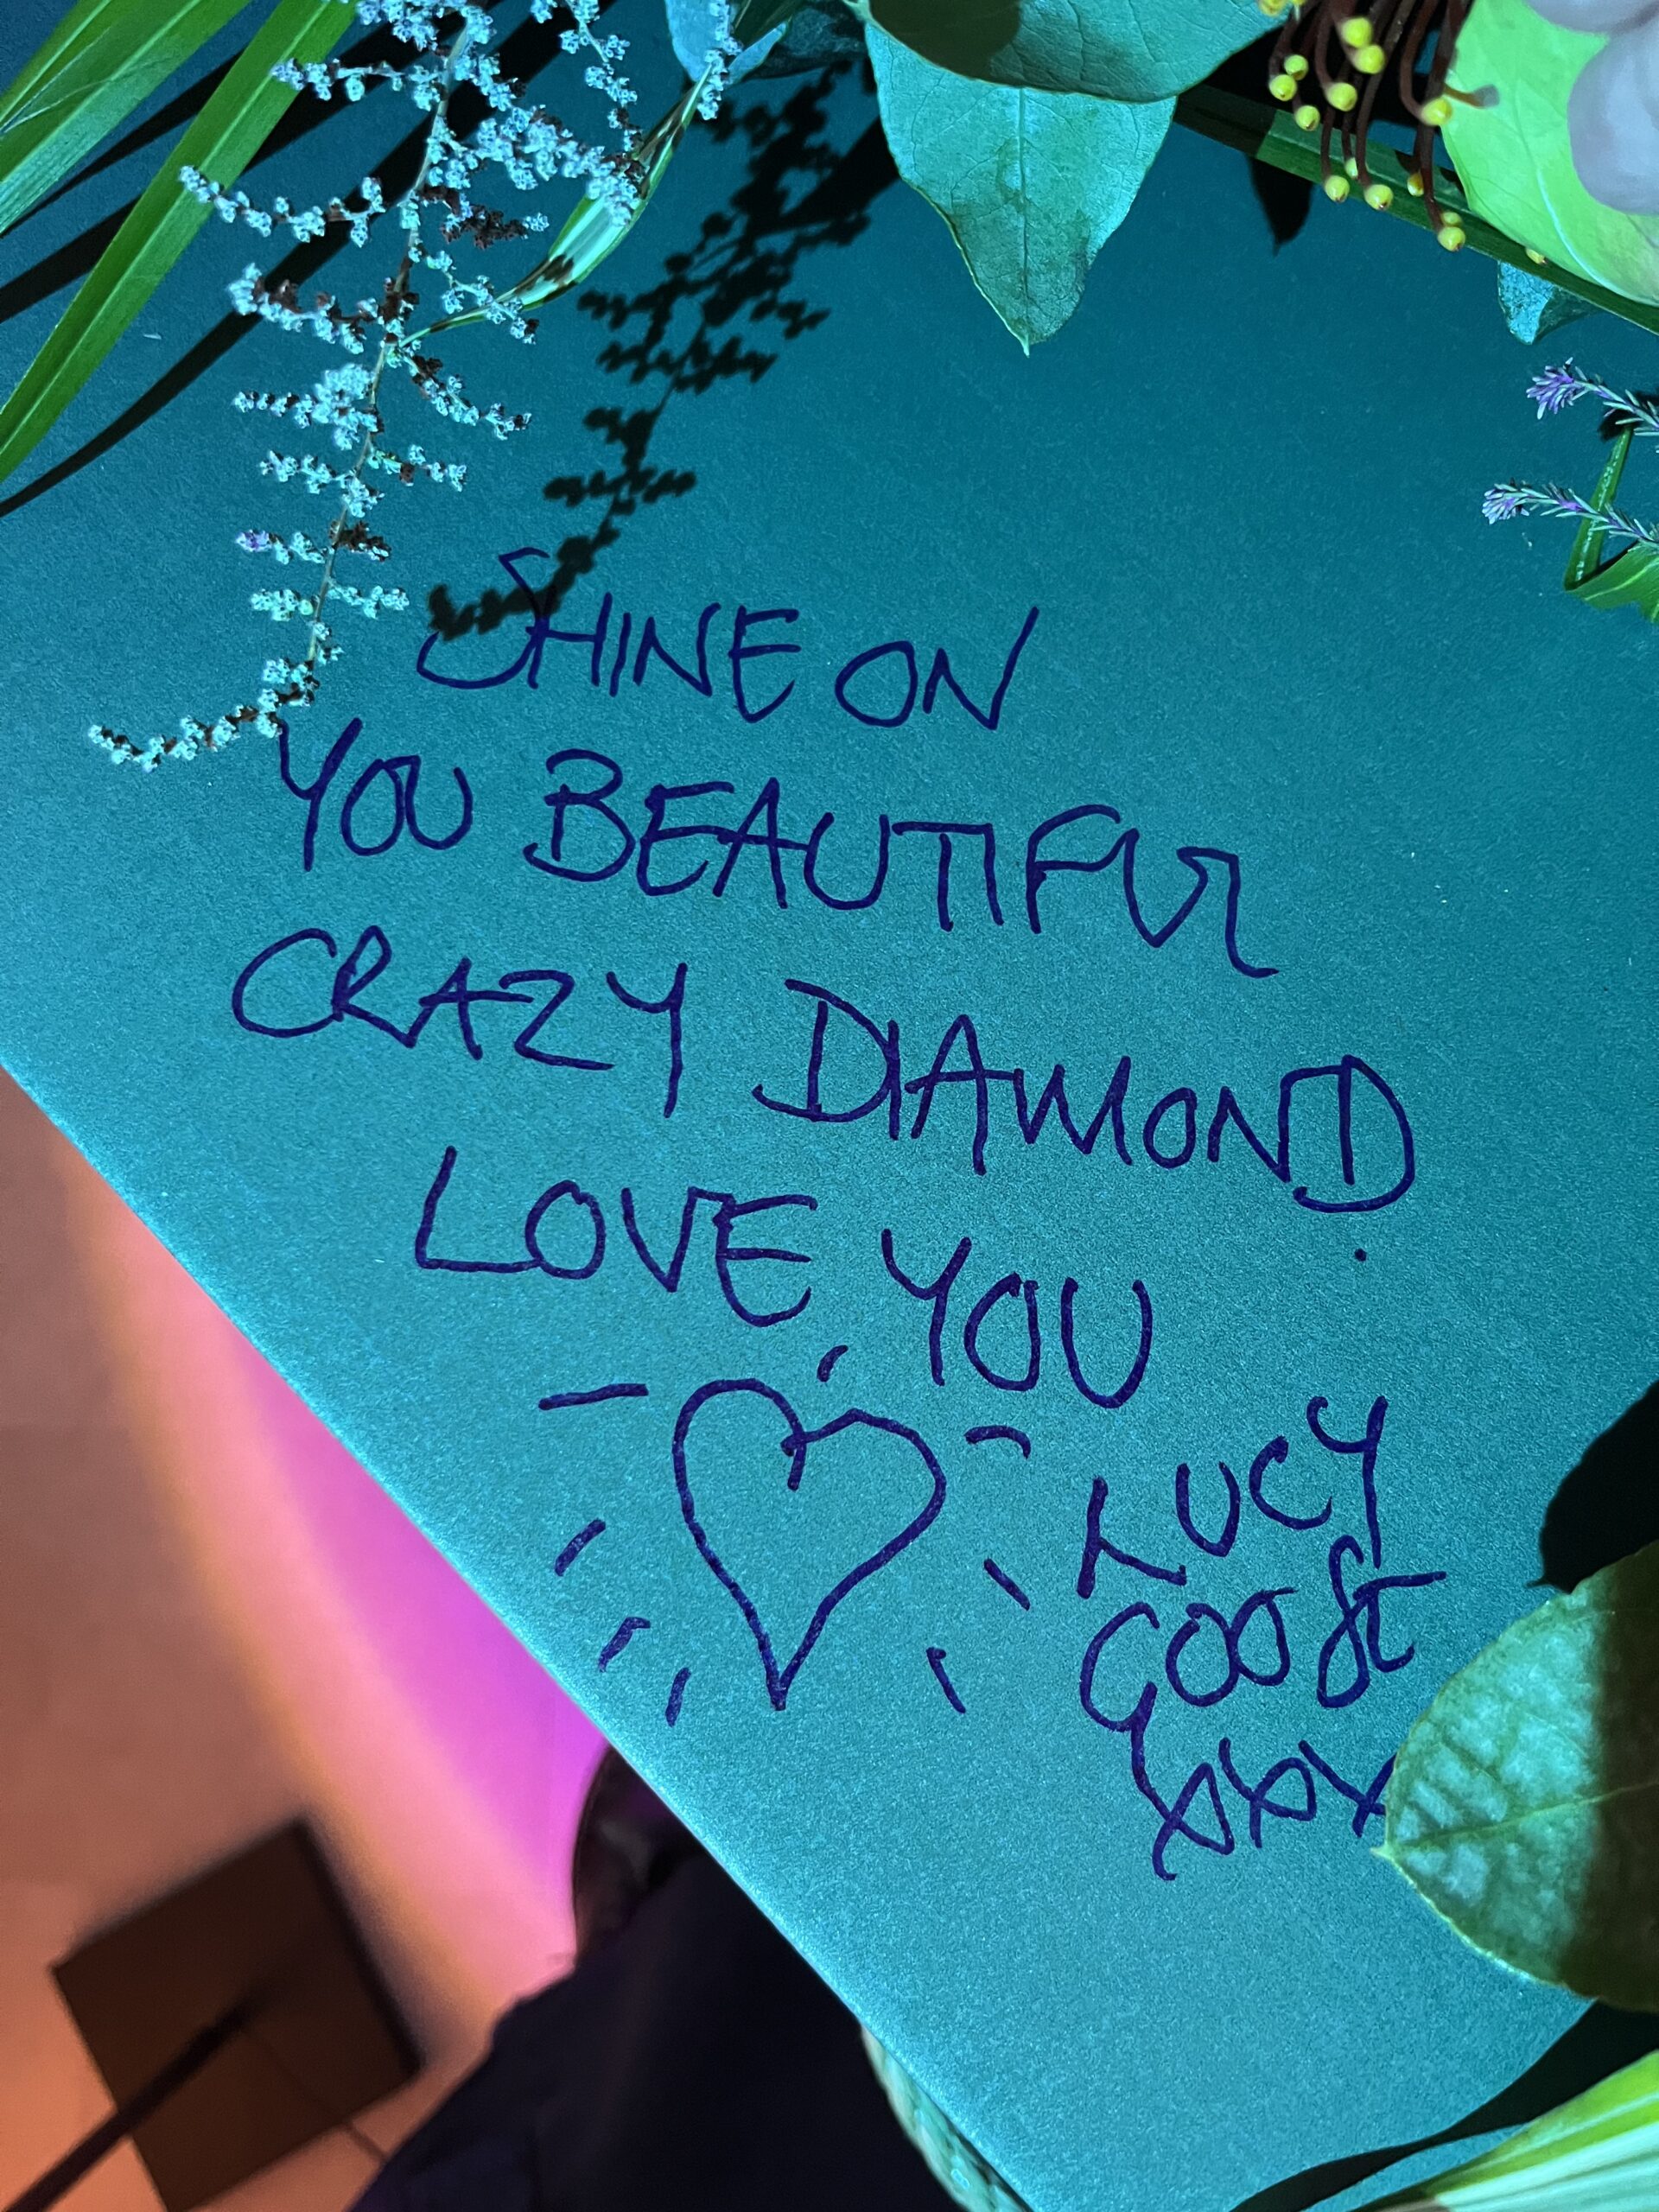 SHINE ON
YOU BEAUTIFUL
CRAZY DIAMOND.
LOVE YOU
LUCY
GOOSE
XXX